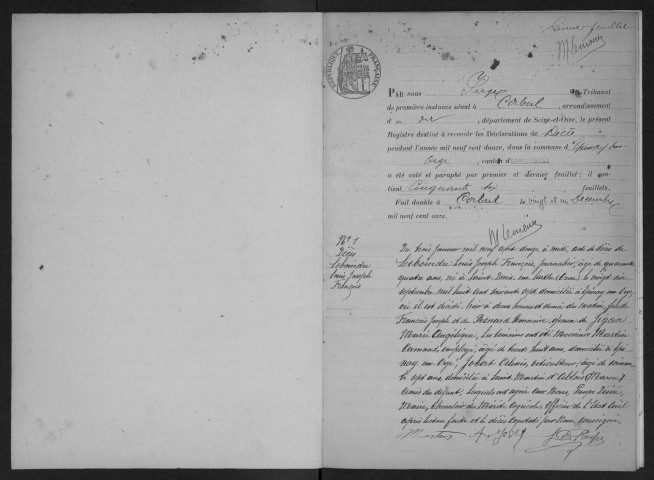 Premier feuillet
M Lemoine
RÉPUBLIQUE FRANÇAISE
PAR nous Juge au Tribunal
de première instance séant à Corbeil, arrondissement
d u dit, département de Seine-et-Oise, le présent
Registre destiné à recevoir les Déclarations de Décès
pendant l'année mil neuf cent douze, dans la commune d'Epinay sur
Orge, canton d
a été coté et paraphé par premier et dernier feuillet; il con-
tient Cinquante six feuillets.
Fait double à Corbeil le vingt et un Décembre
mil neuf cent onze.
M Lemoine
N° 1
Décès
Leboindre
Louis Joseph
François
Du trois Janvier mil neuf cent douze à midi, acte de décès de
Leboindre Louis Joseph François, journalier, âgé de quarante
quatre ans, né à Saint Denis sur Sarthe (Orne) le vingt six
septembre mil huit cent soixante sept, domicilié à Epinay sur Orge
où il est décédé hier à deux heures et demie du matin, fils de
François Joseph et de Honorine, époux de
Marie Angélique. Les témoins ont été Messieurs Martin
Armand, employé, âgé de trente huit ans, domicilié à Epi
nay sur Orge, Jobert, viticulteur, âgé de soixan
te sept ans, domicilié à Saint Martin d'Ablois (Marne)
amis du défunt, lesquels ont signé avec Nous,
Maire, Chevalier du Mérite Agricole, Officier de l'Etat Civil
après lecture faite et le décès constaté par Nous, soussigné
Martin A. Jobert